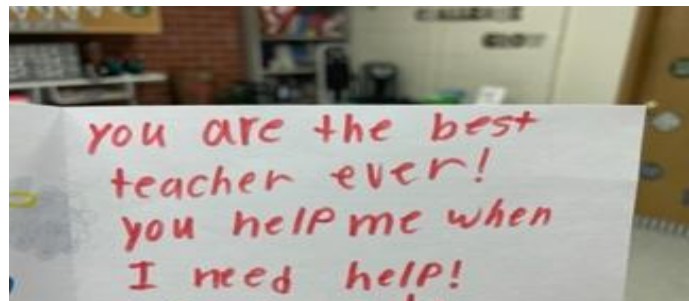 you are the best
teacher ever!
you help me when
I need help!